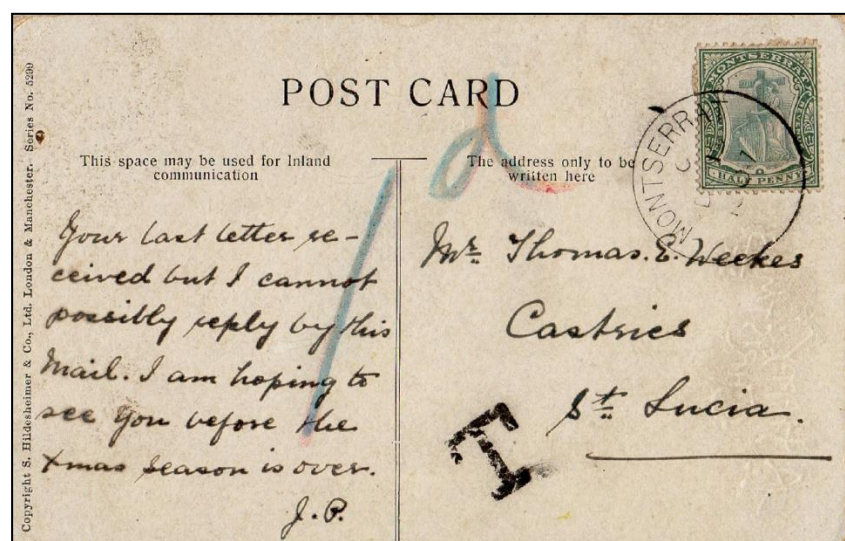 Copyright S. Hildesheimer & Co., Ltd. London & Manchester. Series No. 5299
POST CARD
This space may be used for Inland
communication
The address only to be
written here
MONTSERRAT
HALF PENNY
MONTSERRAT
1d
Your last letter re-
ceived but I cannot
possibly reply by this
Mail. I am hoping to
see you before the
Xmas season is over.
J.P.
Mr. Thomas. E. Weekes
Castries
St. Lucia.
T